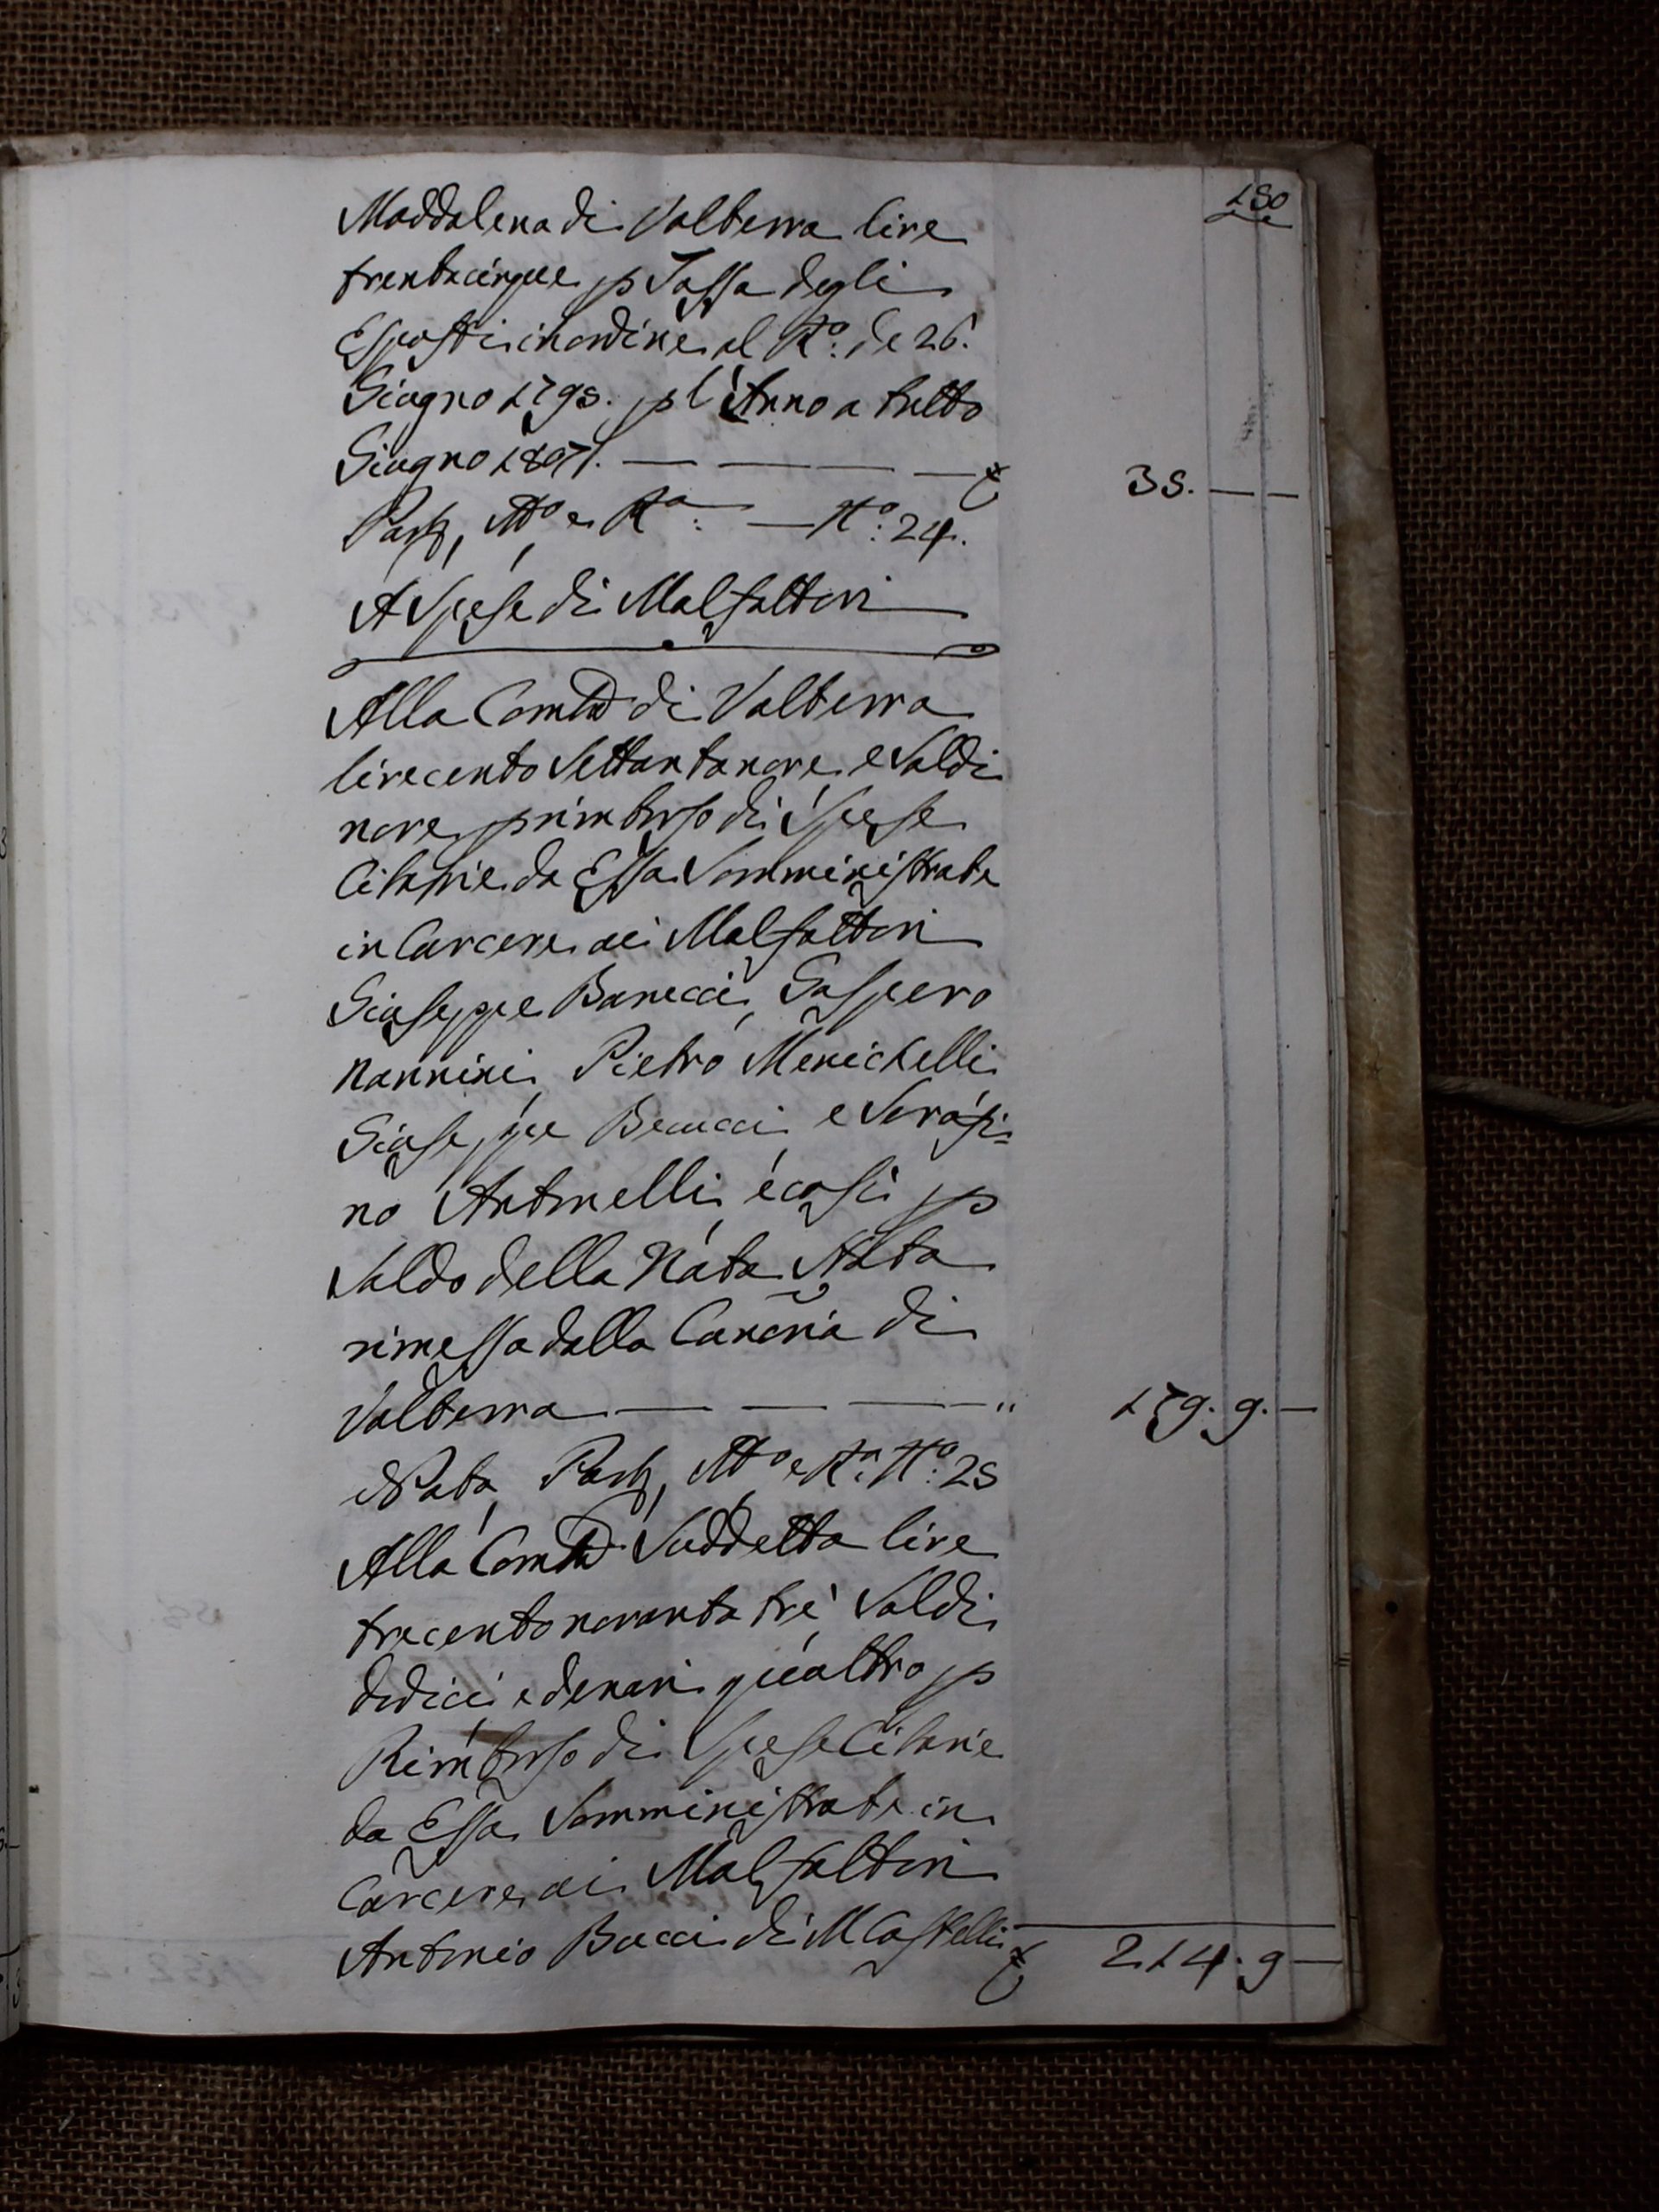 150
Maddalena di Volterra lire
trentacinque p Tassa degli
Esposti in ordine al R.o de 26.
Giugno 1795. p l'Anno a tutto
Giugno 1807. — — — — £ 35. — —
Part, Mto e Ra: — No: 24.
A Spese di Malfattori
Alla Comtà di Volterra
lire cento Settantanove, e Soldi
nove p rimborso di Spese
Cibarie da Essa Somministrate
in Carcere ai Malfattori
Giuseppe Banecci, Gaspero
Nannini, Pietro Menichelli
Giuseppe Becucci, e Serafi=
no Antonelli, e così p
Saldo della Nata Nota
rimessa dalla Cancria di
Volterra — — — — " 179. 9. —
Nata, Part, Mto e Ra No: 25
Alla Comtà Suddetta lire
trecento novanta trè, Soldi
dodici, e denari quattro p
Rimborso di Spese Cibarie
da Essa Somministrate in
Carcere ai Malfattori
Antonio Bucci di M Castelli £ 214. 9 —